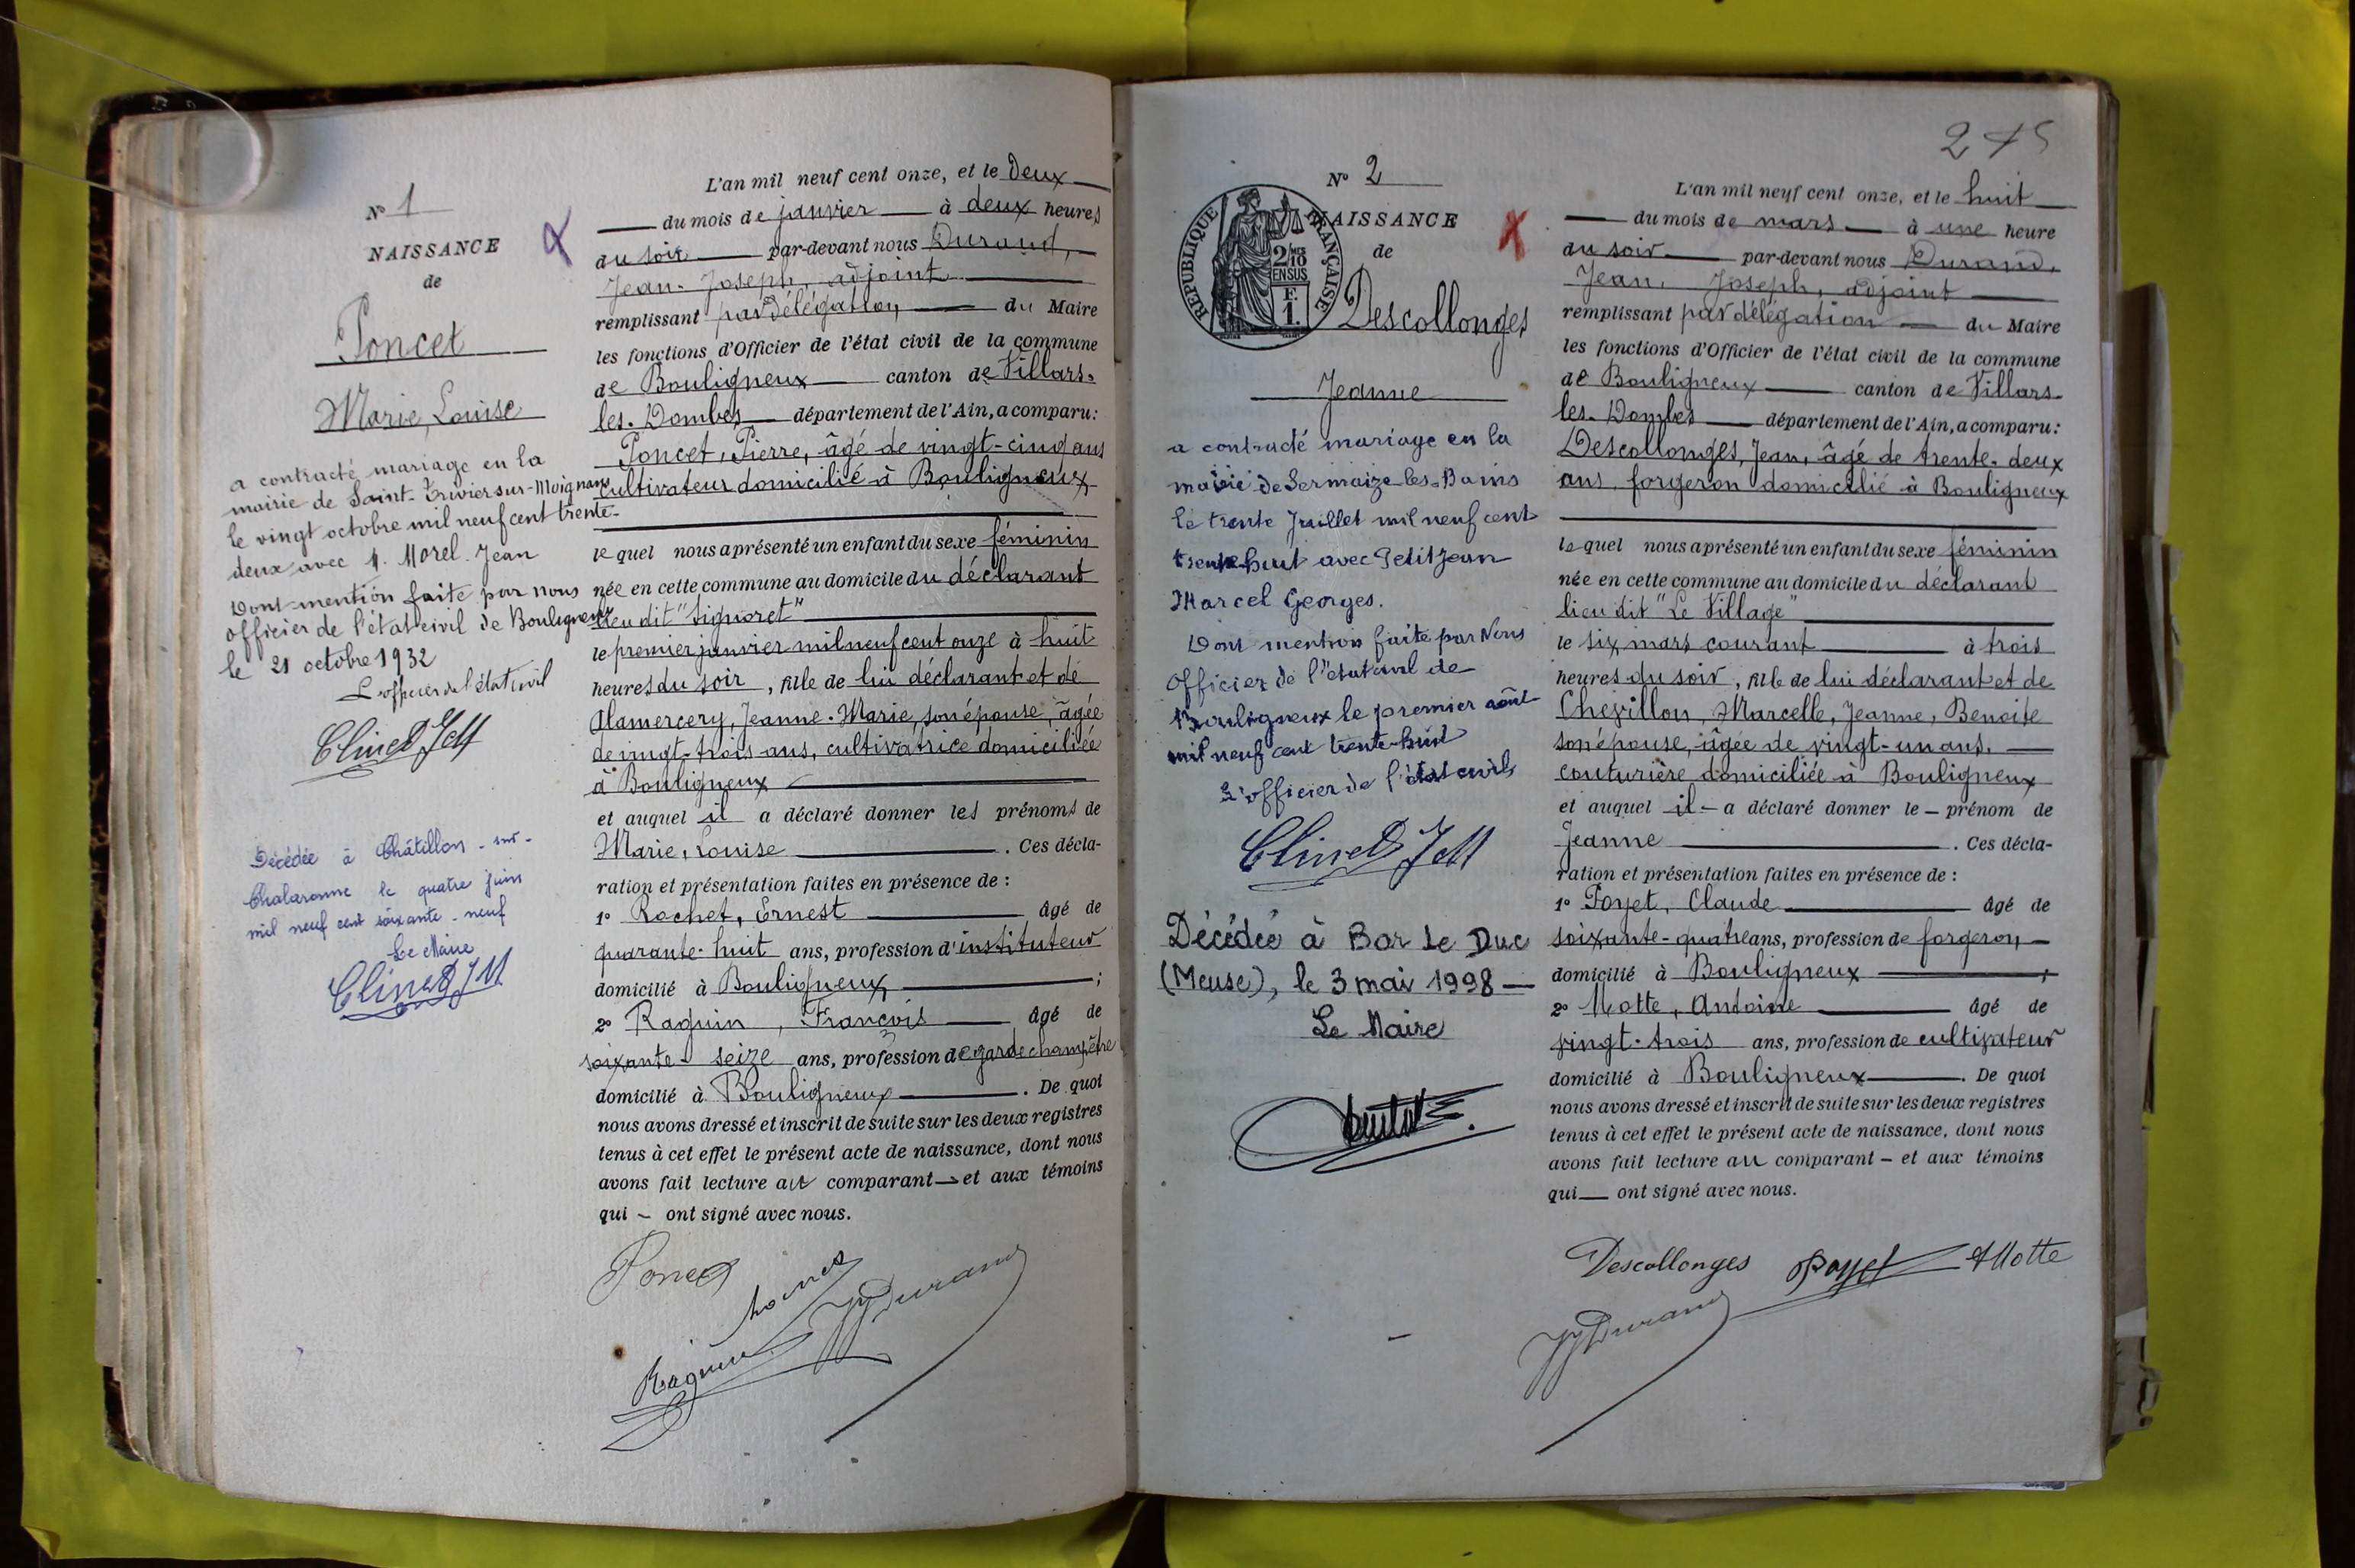 N° 1
NAISSANCE
de
Poncet
Marie, Louise
a contracté mariage en la
mairie de Saint-Trivier-sur-Moignans
le vingt octobre mil neuf cent trente-
deux avec M. Morel Jean
Dont mention faite par nous
officier de l'état civil de Bouligneux
le 21 octobre 1932
L'officier de l'état civil
Décédée à Châtillon-sur-
Chalaronne le quatre juin
mil neuf cent soixante-neuf
Le Maire
L'an mil neuf cent onze, et le Deux
du mois de janvier à deux heures
du soir par-devant nous Durand,
Jean-Joseph, adjoint
remplissant par délégation du Maire
les fonctions d'Officier de l'état civil de la commune
de Bouligneux canton de Villars-
les-Dombes département de l'Ain, a comparu:
Poncet, Pierre, âgé de vingt-cinq ans
cultivateur domicilié à Bouligneux
le quel nous a présenté un enfant du sexe féminin
née en cette commune au domicile du déclarant
lieu dit "Signoret"
le premier janvier mil neuf cent onze à huit
heures du soir, fille de lui déclarant et de
Alamercery, Jeanne-Marie, son épouse, âgée
de vingt-trois ans, cultivatrice domiciliée
à Bouligneux
et auquel il a déclaré donner les prénoms de
Marie, Louise . Ces décla-
ration et présentation faites en présence de :
1° Rochet, Ernest âgé de
quarante-huit ans, profession d'instituteur
domicilié à Bouligneux ;
2° Raguin, François âgé de
soixante-seize ans, profession de garde champêtre
domicilié à Bouligneux . De quoi
nous avons dressé et inscrit de suite sur les deux registres
tenus à cet effet le présent acte de naissance, dont nous
avons fait lecture au comparant — et aux témoins
qui — ont signé avec nous.
Poncet
Raguin
JJ Durand
275
N° 2
REPUBLIQUE FRANÇAISE
2/10
EN SUS
F.
1.
NAISSANCE
de
Descollonges
Jeanne
a contracté mariage en la
mairie de Sermaize-les-Bains
le trente Juillet mil neuf cent
trente-huit avec Petitjean
Marcel Georges.
Dont mention faite par Nous
Officier de l'état civil de
Bouligneux le premier août
mil neuf cent trente-huit
L'officier de l'état civil
Décédée à Bar le Duc
(Meuse), le 3 mai 1998 —
Le Maire
L'an mil neuf cent onze, et le huit
du mois de mars à une heure
du soir par-devant nous Durand,
Jean, Joseph, adjoint
remplissant par délégation du Maire
les fonctions d'Officier de l'état civil de la commune
de Bouligneux canton de Villars-
les-Dombes département de l'Ain, a comparu:
Descollonges, Jean, âgé de trente-deux
ans, forgeron domicilié à Bouligneux
le quel nous a présenté un enfant du sexe féminin
née en cette commune au domicile du déclarant
lieu dit "Le Village"
le six mars courant à trois
heures du soir, fille de lui déclarant et de
Chevillon, Marcelle, Jeanne, Benoite
son épouse, âgée de vingt-un ans,
couturière domiciliée à Bouligneux
et auquel il — a déclaré donner le — prénom de
Jeanne . Ces décla-
ration et présentation faites en présence de :
1° Poyet, Claude âgé de
soixante-quatre ans, profession de forgeron
domicilié à Bouligneux ;
2° Motte, Antoine âgé de
vingt-trois ans, profession de cultivateur
domicilié à Bouligneux . De quoi
nous avons dressé et inscrit de suite sur les deux registres
tenus à cet effet le présent acte de naissance, dont nous
avons fait lecture au comparant — et aux témoins
qui — ont signé avec nous.
Descollonges Poyet A Motte
JJ Durand